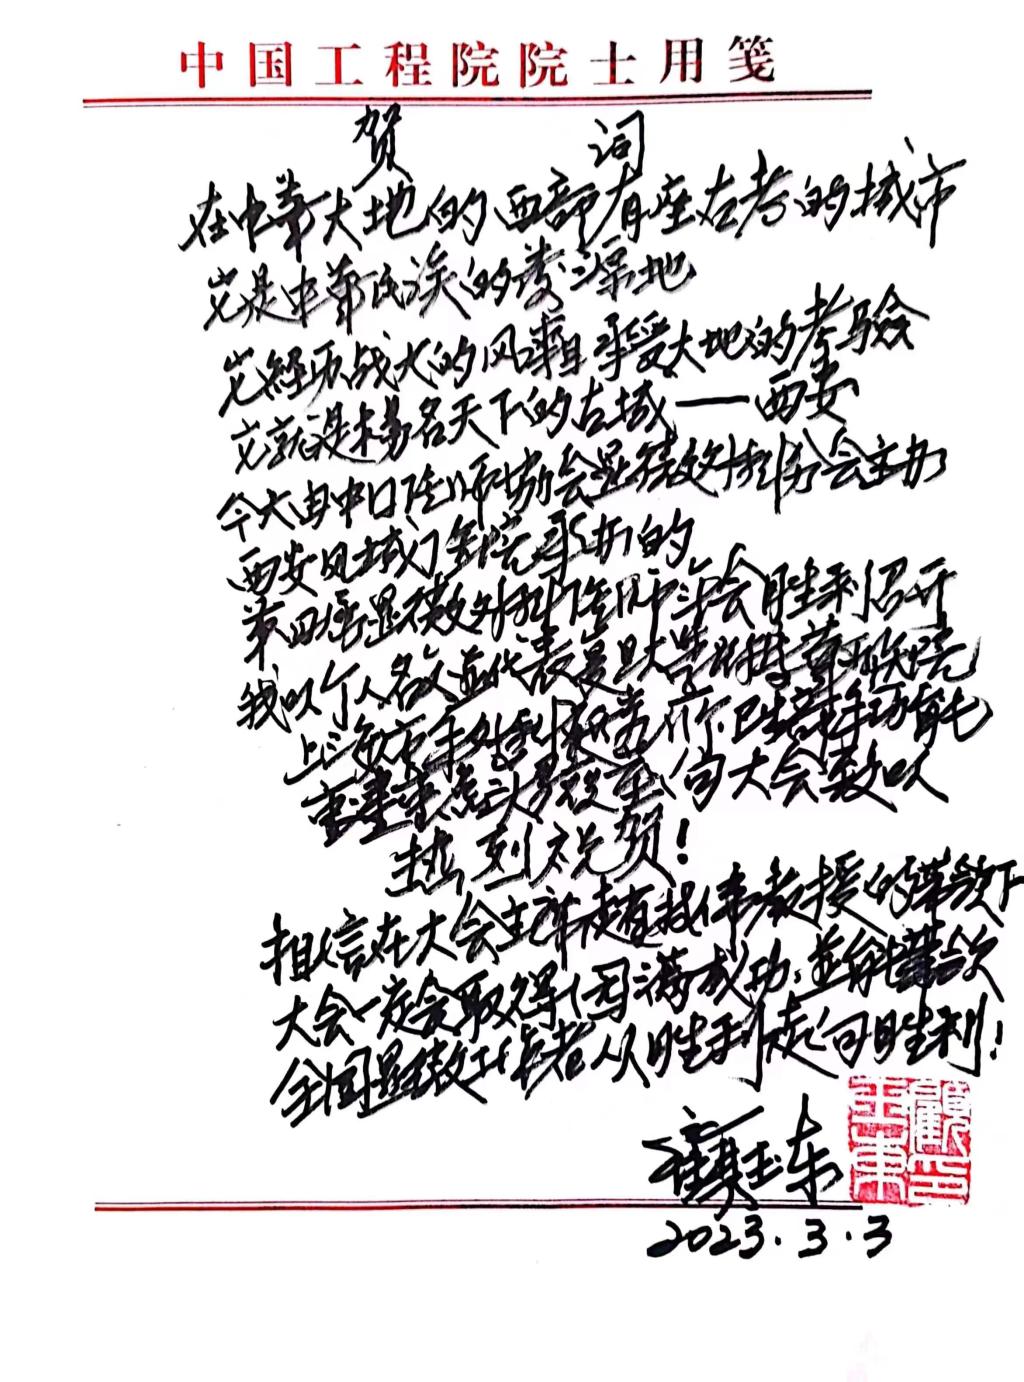 中国工程院院士用笺
贺词
在中华大地的西部有座古老的城市
它是中华民族的发源地
它经历战火的风霜承受大地的考验
它就是扬名天下的古城——西安
今天由中口医师协会显微外科分会主办
西安凤城医院承办的
第四届显微外科医师年会胜利召开
我以个人名义并代表复旦大学附属华山医院
上海市手外科研究所、卫生部手功能
重建重点实验室向大会致以
热烈祝贺！
相信在大会主席教授的带领下
大会一定会取得园满成功，并能带领
全国显微工作者从胜利走向胜利！
顾玉东
顾玉东印
2023.3.3